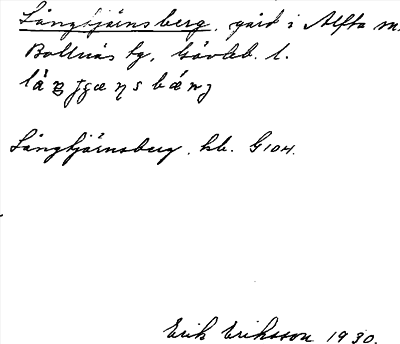 Långtjärnsberg, gård i Alfta sn.
Bollnäs tg, Gävleb. l.
Långtjärnsberg. kb. G 104.
Erik Eriksson 1930.